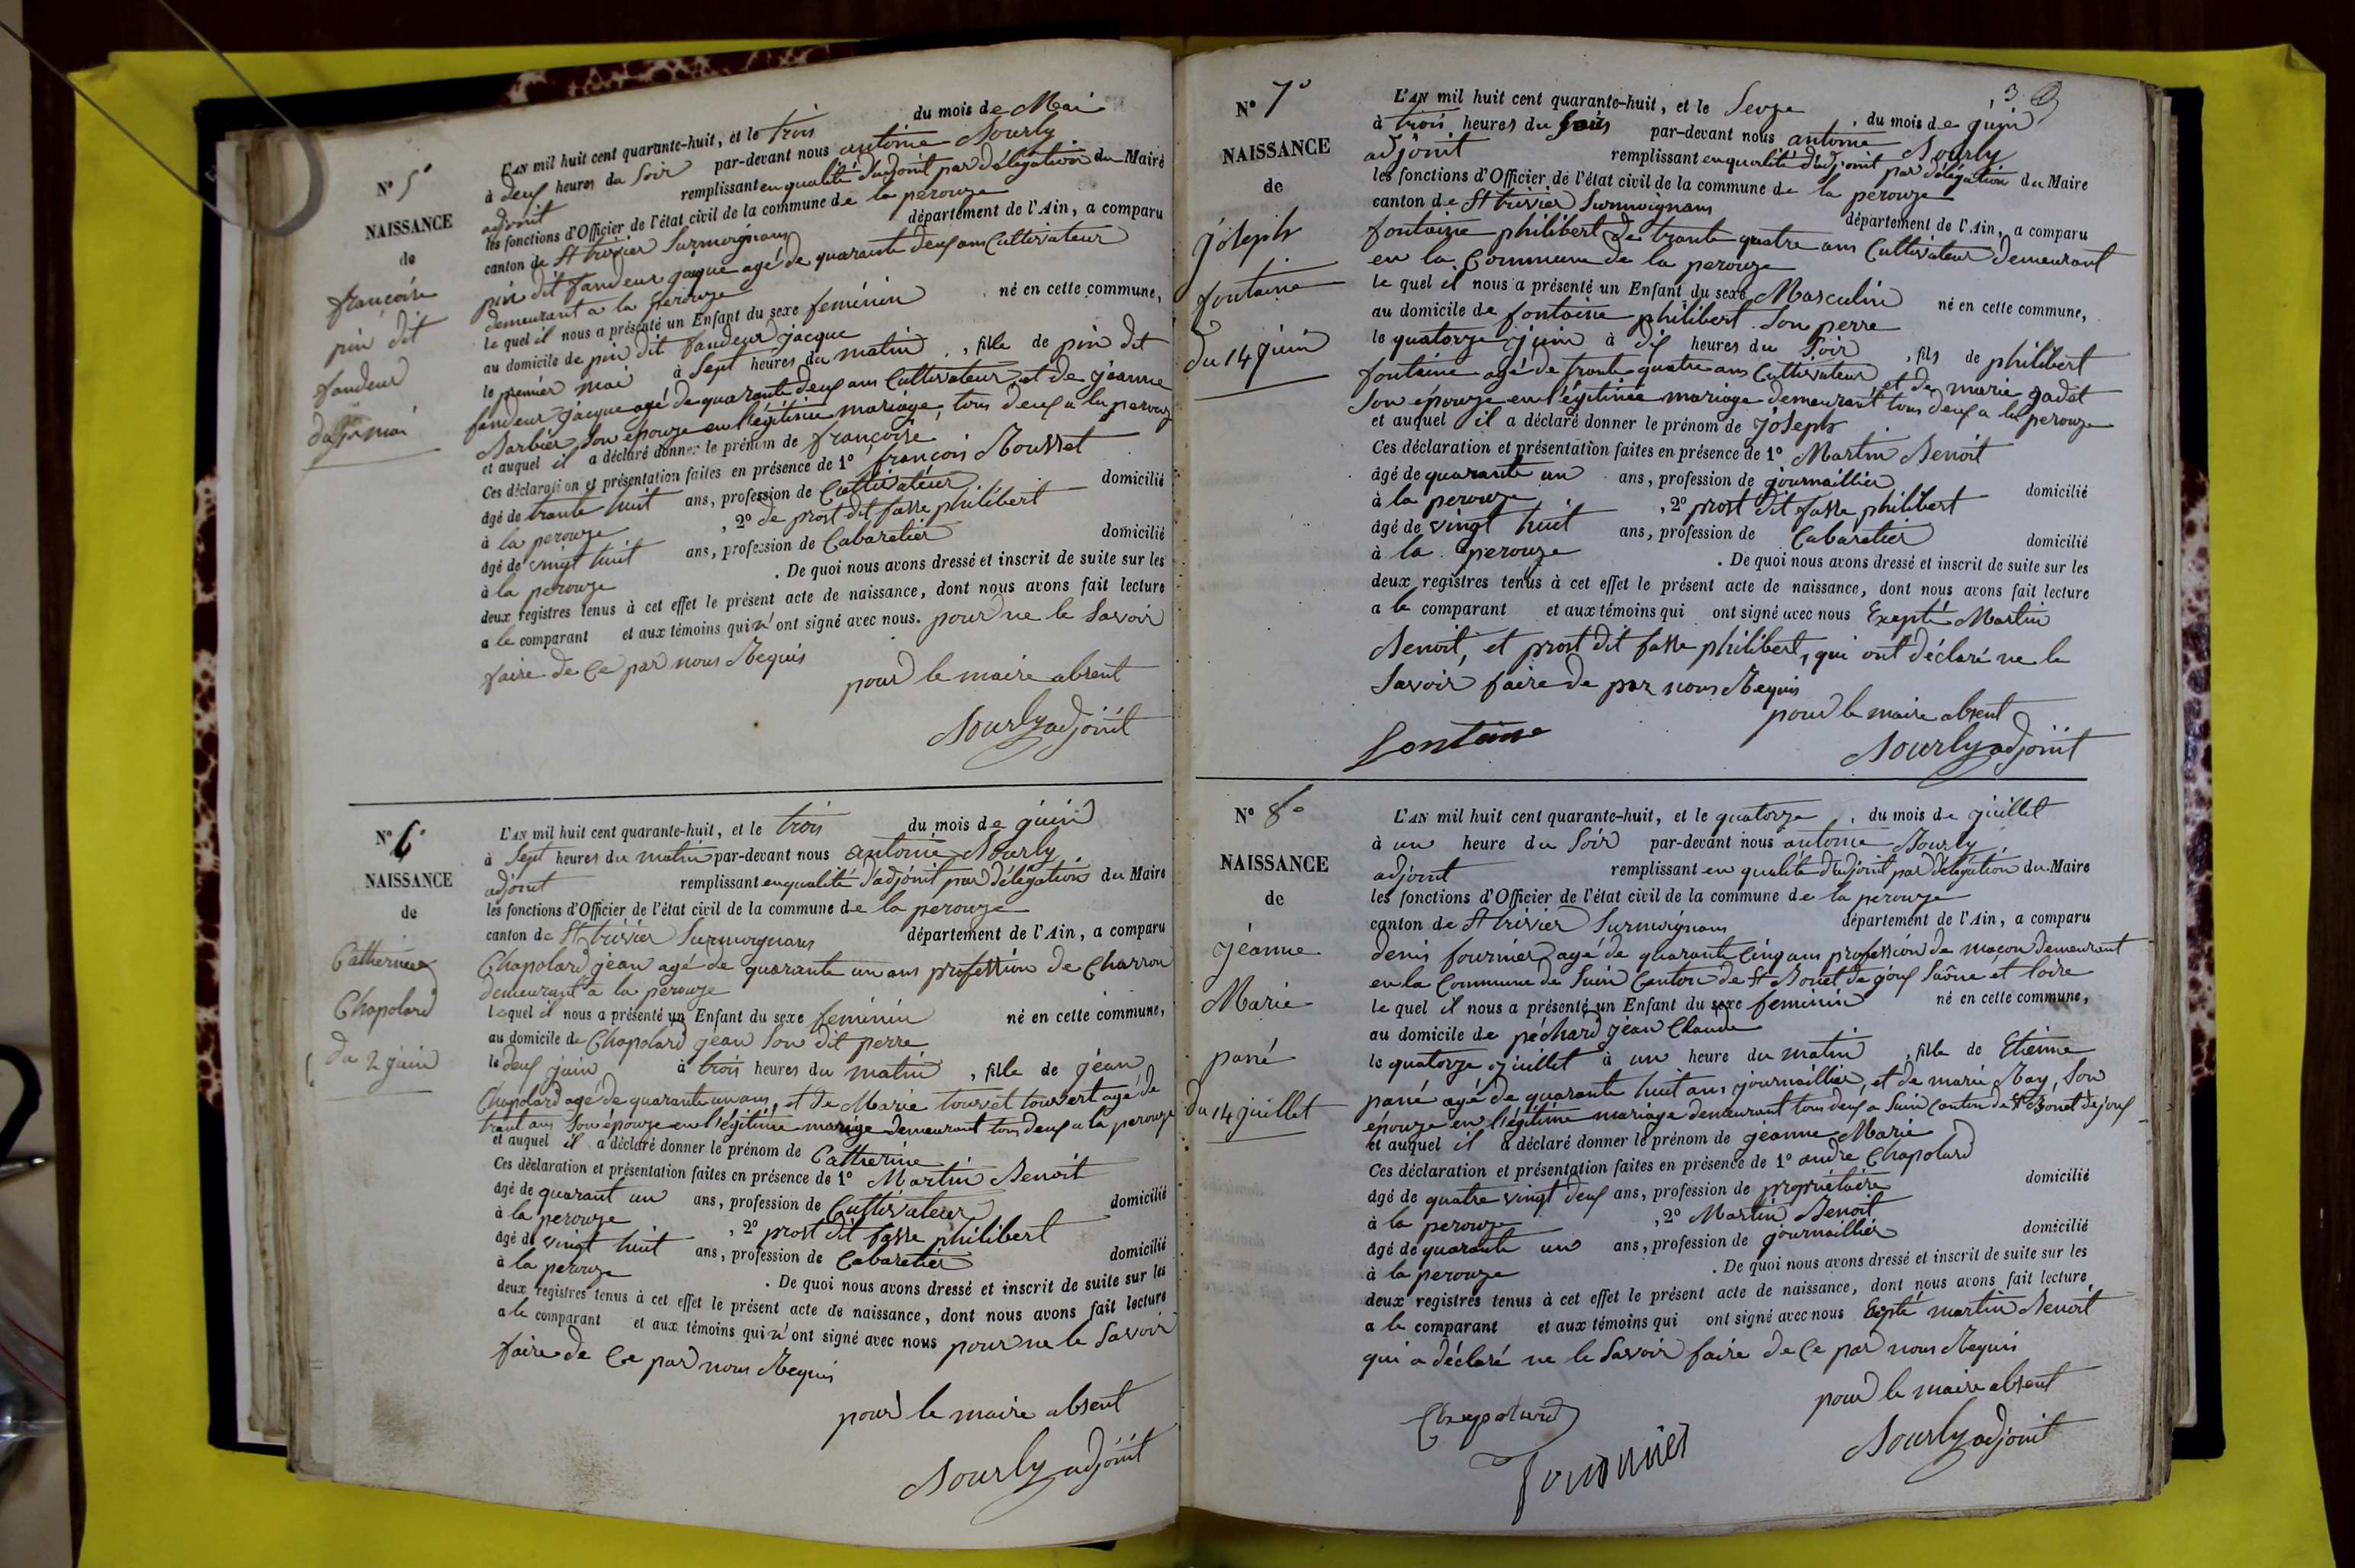 N° 5°
NAISSANCE
de
françoise
pin dit
fandeur
du 1er mai
L'AN mil huit cent quarante-huit, et le trois du mois de Mai
à deux heures du Soir par-devant nous antoine Bourly
adjoint remplissant en qualité d'adjoint par délégation du Maire
les fonctions d'Officier de l'état civil de la commune de la perouze
canton de St trivier Surmoignans département de l'Ain, a comparu
pin dit fandeur jacque agé de quarante deux ans Cultivateur
demeurant a la perouze
le quel il nous a présenté un Enfant du sexe feminin né en cette commune,
au domicile de pin dit fandeur jacque
le premier mai à Sept heures du matin, fille de pin dit
fandeur jacque agé de quarante deux ans Cultivateur et de jeanne
Barbier Son épouze en l'égitime mariage, tous deux a la perouze
et auquel il a déclaré donner le prénom de françoise
Ces déclaration et présentation faites en présence de 1° françois Mousset
âgé de trante huit ans, profession de Cultivateur domicilié
à la perouze, 2° de prost dit fasse philibert
âgé de vingt huit ans, profession de Cabaretier domicilié
à la perouze. De quoi nous avons dressé et inscrit de suite sur les
deux registres tenus à cet effet le présent acte de naissance, dont nous avons fait lecture
a le comparant et aux témoins qui n'ont signé avec nous. pour ne le Savoir
faire de Ce par nous Requis
pour le maire absent
Bourly adjoint
N° 6°
NAISSANCE
de
Catherine
Chapolard
du 2 juin
L'AN mil huit cent quarante-huit, et le trois du mois de juin
à Sept heures du matin par-devant nous antoine Bourly
adjoint remplissant en qualité d'adjoint par délégation du Maire
les fonctions d'Officier de l'état civil de la commune de la perouze
canton de St trivier Surmoignans département de l'Ain, a comparu
Chapolard jean agé de quarante un ans profession de Charron
demeurant a la perouze
lequel il nous a présenté un Enfant du sexe feminin né en cette commune,
au domicile de Chapolard jean Son dit perre
le deux juin à trois heures du matin, fille de jean
Chapolard agé de quarante un ans, et de Marie tourret tourvert agé de
trant ans Son épouze en l'égitime mariage demeurant tous deux a la perouze
et auquel il a déclaré donner le prénom de Catherine
Ces déclaration et présentation faites en présence de 1° Martin Benoit
âgé de quarant un ans, profession de Cultivateur domicilié
à la perouze, 2° prost dit fasse philibert
âgé de vingt huit ans, profession de Cabaretier domicilié
à la perouze. De quoi nous avons dressé et inscrit de suite sur les
deux registres tenus à cet effet le présent acte de naissance, dont nous avons fait lecture
a le comparant et aux témoins qui n'ont signé avec nous pour ne le Savoir
faire de Ce par nous Requis
pour le maire absent
Bourly adjoint
3
N° 7°
NAISSANCE
de
joseph
fontaine
du 14 juin
L'AN mil huit cent quarante-huit, et le Sevze du mois de juin
à trois heures du Soir par-devant nous antoine Bourly
adjoint remplissant en qualité d'adjoint par délégation du Maire
les fonctions d'Officier de l'état civil de la commune de la perouze
canton de St trivier Surmoignans département de l'Ain, a comparu
fontaine philibert de trante quatre ans Cultivateur demeurant
en la Commune de la perouze
le quel il nous a présenté un Enfant du sexe Masculin né en cette commune,
au domicile de fontaine philibert Son perre
le quatorze juin à dix heures du Soir, fils de philibert
fontaine agé de trante quatre ans Cultivateur et de marie gadet
Son épouze en l'égitimée mariage demeurant tous deux a la perouze
et auquel il a déclaré donner le prénom de joseph
Ces déclaration et présentation faites en présence de 1° Martin Benoit
âgé de quarante un ans, profession de journaillier domicilié
à la perouze, 2° prost dit fasse philibert
âgé de vingt huit ans, profession de Cabaretier domicilié
à la perouze. De quoi nous avons dressé et inscrit de suite sur les
deux registres tenus à cet effet le présent acte de naissance, dont nous avons fait lecture
a le comparant et aux témoins qui ont signé avec nous Exepté Martin
Benoit, et prost dit fasse philibert, qui ont déclaré ne le
Savoir faire de par nous Requis
pour le maire absent
fontaine
Bourly adjoint
N° 8°
NAISSANCE
de
jeanne
Marie
pané
du 14 juillet
L'AN mil huit cent quarante-huit, et le quatorze du mois de juillet
à un heure du Soir par-devant nous antoine Bourly
adjoint remplissant en qualité d'adjoint par délégation du Maire
les fonctions d'Officier de l'état civil de la commune de la perouze
canton de St trivier Surmoignans département de l'Ain, a comparu
denis fournier agé de quarante Cinq ans profession de maçon demeurant
en la Commune de Suin Canton de St Bonet de joux Saône et loire
le quel il nous a présenté un Enfant du sexe feminin né en cette commune,
au domicile de péchard jean Claude
le quatorze juillet à un heure du matin, fille de Etienne
pané agé de quarante huit ans journaillier, et de marie Ray, Son
épouze en l'égitime mariage demeurant tous deux a Suin Canton de St Bonet de joux
et auquel il a déclaré donner le prénom de jeanne Marie
Ces déclaration et présentation faites en présence de 1° andré Chapolard
âgé de quatre vingt deux ans, profession de propriétaire domicilié
à la perouze, 2° Martin Benoit
âgé de quarante un ans, profession de journaillier domicilié
à la perouze. De quoi nous avons dressé et inscrit de suite sur les
deux registres tenus à cet effet le présent acte de naissance, dont nous avons fait lecture
a le comparant et aux témoins qui ont signé avec nous Exepté martin Benoit
qui a déclaré ne le Savoir faire de Ce par nous Requis
pour le maire absent
Chapolard
Fournier
Bourly adjoint